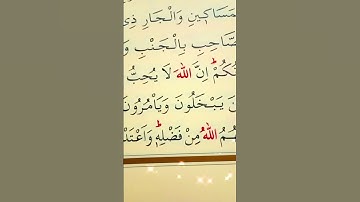 مَسَاكٖينِ وَالْجَارِ ذِي
صَّاحِبِ بِالْجَنْبِ وَ
كُمْ اِنَّ اللّٰهَ لَا يُحِبُّ
نَ يَبْخَلُونَ وَيَأْمُرُونَ
هُمُ اللّٰهُ مِنْ فَضْلِهٖ وَاَعْتَدْ